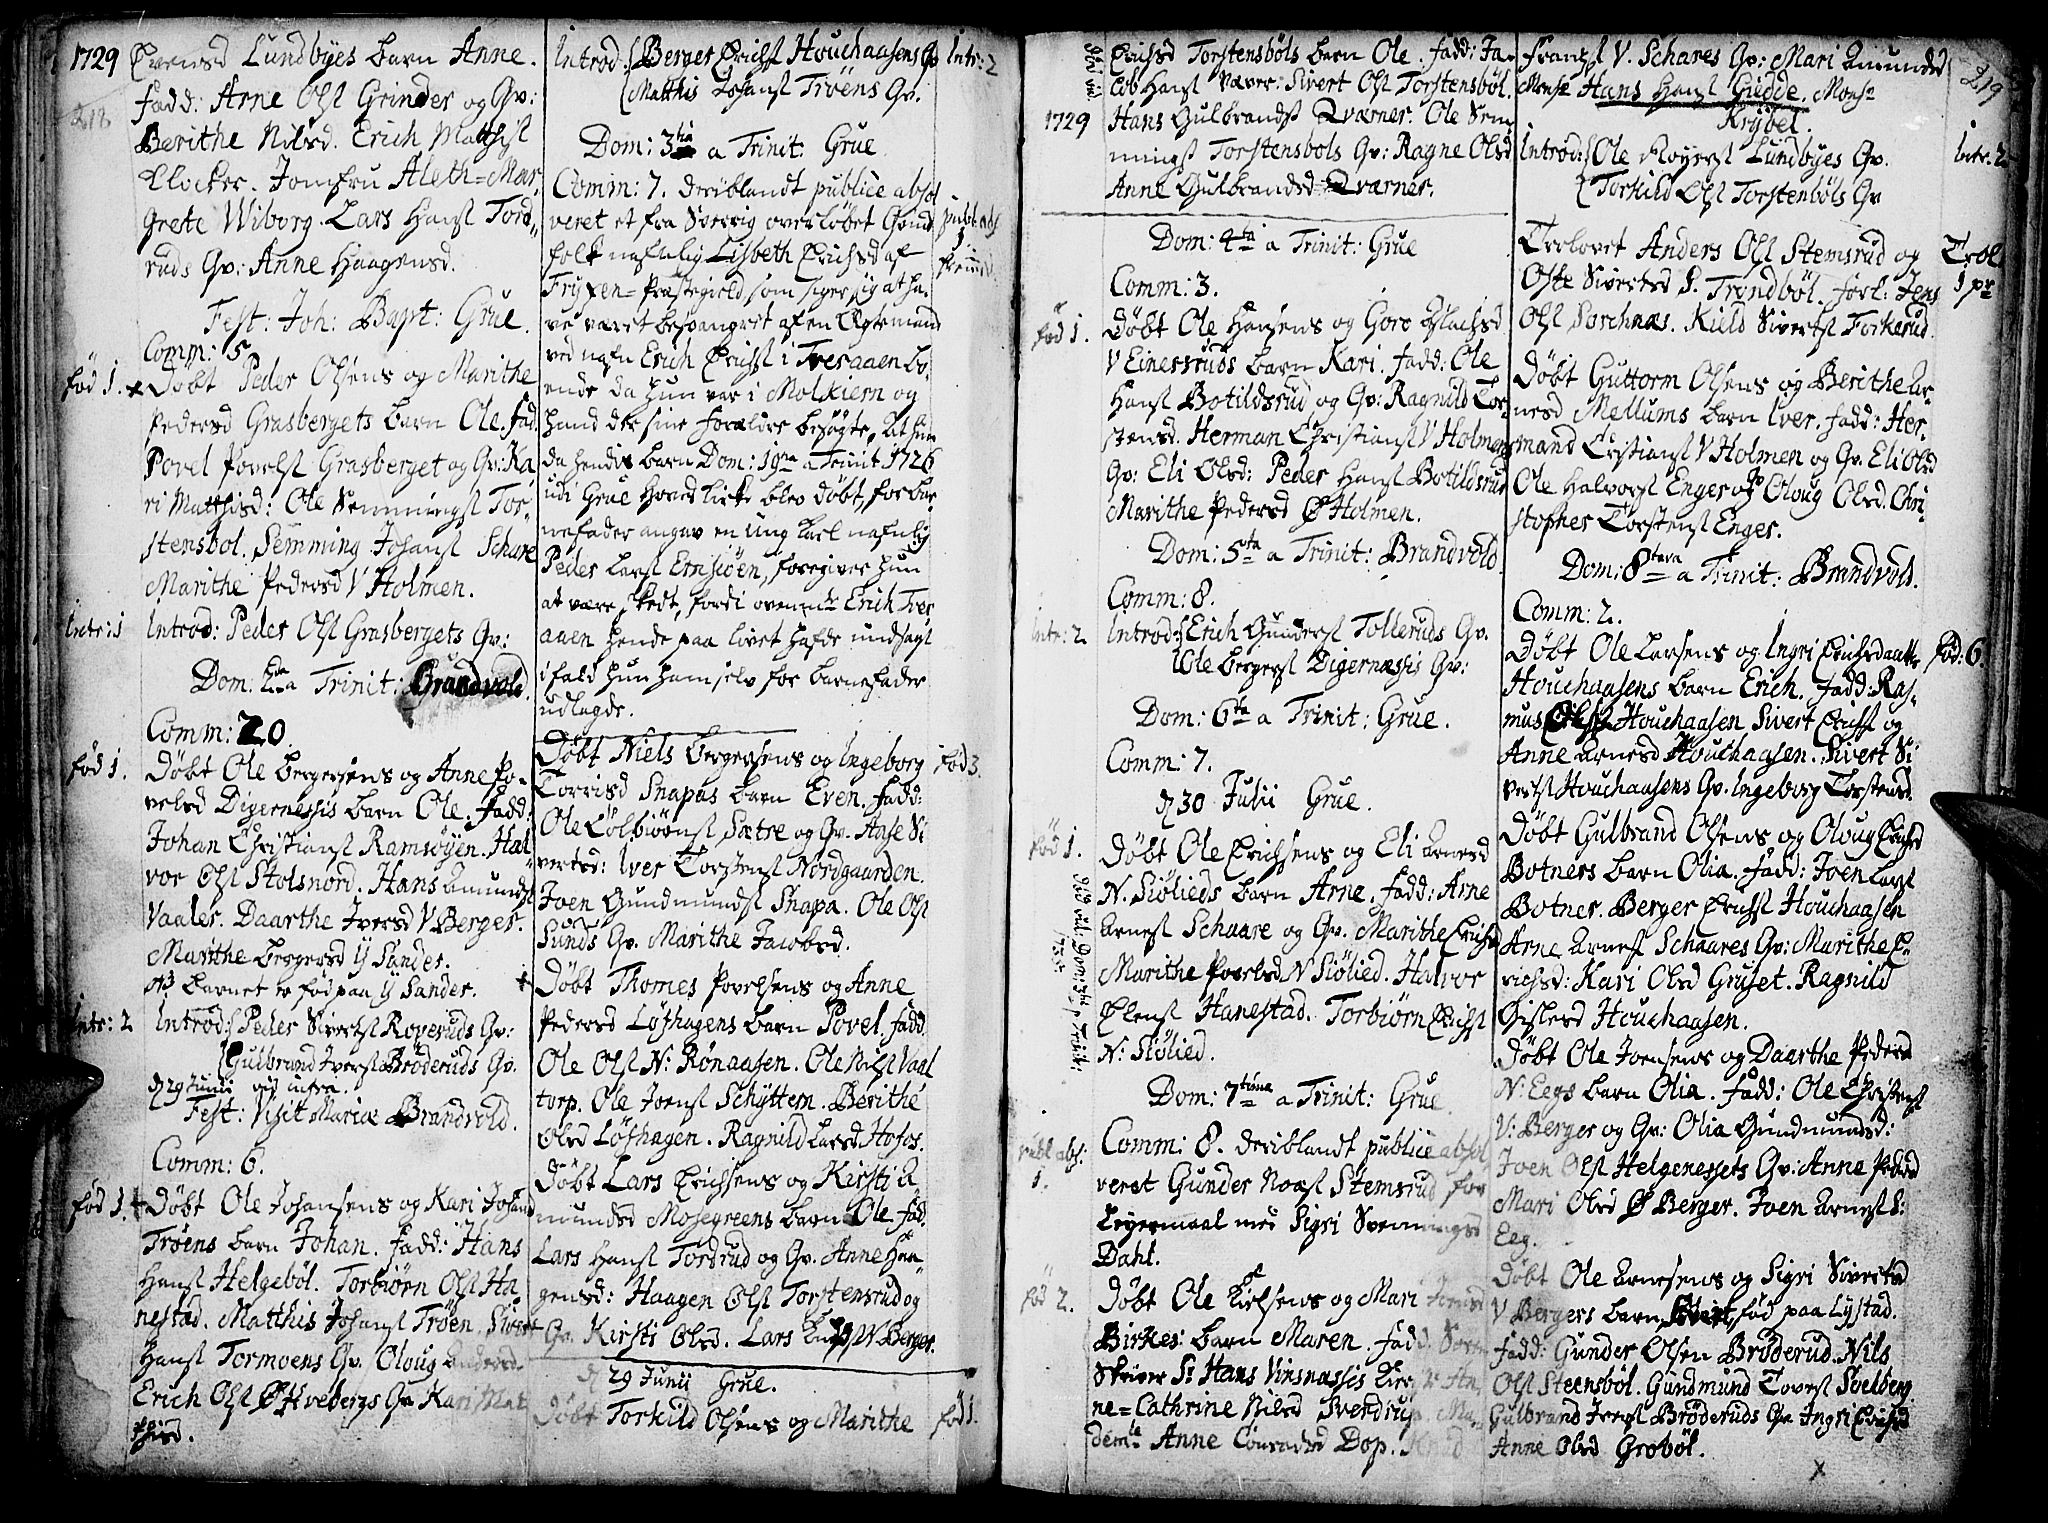 1729
218
Evensd Lundbyes barn Anne.
fadd: Arne Ols Grinder og Qv:
Berithe Nilsd. Erich Matthis
Klocker. Jomfru Aleth=Mar
grete Wiborg. Lars Hans Tord
ruds Qv: Anne Haagensd.
Fest: Joh: Bapt: Grue.
Comm: 5
fød 1.
Døbt Peder Olsens og Marithe
Pedersd Grasbergets barn Ole. fad.
Povel Povels Grasberget og Qv: Ka
ri Matthisd: Ole Semmings Tor
stensbol. Semming Johans Schare
Marithe Pedersd V Holmen.
Intr: 1
Introd: Peder Ols Grasbergets Qv:
Dom: 2da a Trinit: Brandvold
Comm: 20
fød 1.
Døbt Ole Bergersens og Anne Po
velsd Digernessis barn Ole. Fadd:
Johan Christians Ramsøyen. Hal
vor Ols Stolsnord. Hans Amunds
Vaaler. Daarthe Iversd V Berger.
Marithe Bergersd Y Sander.
NB Barnet er fød paa Y Sander.
Intr: 2
Introd: Peder Siverts Roveruds Qv:
Gulbrand Ivers Brøderuds Qv.
d 29 Junii vid infra.
Fest: Visit Mariæ Brandvold.
Comm: 6.
fød 1.
Døbt Ole Johansens og Kari Johansd
Trøens barn Johan. Fadd: Hans
Hans Helgebøl. Torbiørn Ols Ha
nestad. Matthis Johans Trøen. Sivert
Hans Tormoens Qv. Oloug Andersd.
Erich Ols Ø Hvebergs Qv Kari Mat
thisd.
Introd: Berger Erichs Houchaasens Qv
Matthis Johans Trøens Qv.
Intr: 2
Dom: 3tia a Trinit: Grue.
Comm: 7. deriblandt publice absol
veret et fra Sverrig overløbet Qvind
folk nafnlig Lisbeth Erichsd af
Fryxen=Præstegield som siger sig at ha
ve været besvangret af en Ægtemand
ved nafn Erich Erichs i Tveraaen bo
ende da hun var i Molkiern og
hand der sine forældre besøgte. At hun
da hendis barn Dom: 19na a Trinit 1726
udi Grue Hoved kirke blev døbt, for bar
nefader angav en ung karl nafnlig
Peder Lars Ernsiøen, foregiver hun
at være skedt, fordi ovenmte Erich Tver
aaen hende paa livet hafde undsagt
ifald hun ham selv for barnefader
udlagde.
publ: abs
1
fremmed.
Døbt Niels Bergersens og Ingeborg
Torrisd Snapas barn Even. Fadd:
Ole Colbiørns Sætre og Qv. Aase Si
vertsd: Iver Torstens Nordgaarden.
Joen Gundmunds Snapa. Ole Ols
Sunds Qv. Marithe Jacobsd.
fød 3.
Døbt Thomes Povelsens og Anne
Pedersd Løfhagens barn Povel. fadd
Ole Ols N: Rønaasen. Ole Nils Vaal
torp. Ole Joens Schyttem. Berithe
Olsd Løfhagen. Ragnild Larsd Hofos.
Døbt Lars Erichsens og Kirsti A
mundsd Mosegreens barn Ole. fad.
Lars Hans Tordrud og Qv. Anne Haa
gensd: Haagen Ols Torstensrud og
Qv. Kirsti Olsd. Lars V. Berger.
d 29 Junii Grue.
Døbt Torkild Olsens og Marithe
fød 1.
1729
Erichsd Torstensbøls barn Ole. fadd: Ja
cob Hans Væver: Sivert Ols Torstensbøl.
Hans Gulbrands Qværner. Ole Sem
mings Torstensbols Qv: Ragne Olsd
Anne Gulbrandsd Qværner.
Dom: 4ta a Trinit: Grue
Comm: 3.
fød 1.
Døbt Ole Hansens og Goro Aslachsd
V Einersruds barn Kari. Fadd: Ole
Hans Botildsrud og Qv: Ragnild Tor
stensd. Herman Christians V Holmens
Qv: Eli Olsd: Peder Hans Botildsrud
Marithe Pedersd Ø Holmen.
Dom: 5ta a Trinit: Brandvold.
Comm: 8.
Intr: 2
Introd: Erich Gunders Tolleruds Qv.
Ole Bergers Digernæssis Qv:
Dom: 6ta a Trinit: Grue.
Comm: 7.
d 30 Julii Grue.
fød 1.
Døbt Ole Erichsens og Eli Arnesd
N. Siølieds barn Arne. fadd: Arne
Arnes Schaare og Qv. Marithe Erichsd
Marithe Povelsd N Siølied. Halvor
Elens Hanestad. Torbiørn Erichs
N: Siølied.
Dom: 7tima a Trinit: Grue.
publ abs:
1.
Comm: 8. deriblandt publice absol
veret Gunder Noas Stemsrud for
Leyermaal med Sigri Svenningsd
Dahl.
fød 2.
Døbt Ole Kielsens og Mari Joensd
Birkes: barn Maren. fadd. Soren
Skriver Sr Hans Vinsnæssis An
ne=Cathrine Nilsd Sverdrup. Ma
demle Anne Conradsd Dop.
219
Frants V. Schares Qv: Mari Amundsd
Monsr Hans Hans Giedde. Monsr
Krybel.
Introd: Ole Floyers Lundbyes Qv.
Torkild Ols Torstenbøls Qv
Intr. 2
Trolovet Anders Ols Stemsrud og
Oste Sivertsd S. Tryndbøl. forl: Jens
Ols Sorchnæs. Kield Siverts Torkerud.
Trol
1 pr
Døbt Guttorm Olsens og Berithe Ar
nesd Mellums barn Iver. fadd: Her
mand Cristians V Holmen og Qv. Eli Olsd
Ole Halvors Enger og Oloug Olsd. Chri
stopher Torstens Enger.
Dom: 8tava a Trinit: Brandvold.
Comm: 2.
Døbt Ole Larsens og Ingri Erichsdaatter
Houchaasens barn Erich. Fadd: Ras
mus Houchaasen Sivert Erichs og
Anne Arnesd Houchaasen. Sivert Si
verts Houchaasens Qv. Ingeborg Torstensd.
fød: 6
Døbt Gulbrand Olsens og Oloug Erichsd
Botners barn Olia. Fadd: Joen Lars
Botner. Berger Erichs Houchaasen
Arne Arnes Schaares Qv: Marithe E
richsd: Kari Olsd Gruset. Ragnild
Gislersd Houchaasen.
Døbt Ole Joensens og Daarthe Pedersd
N: Eegs barn Olia. Fadd: Ole Christens
V: Berger og Qv: Olia Gundmundsd:
Joen Ols Helgenessets Qv: Anne Pedersd
Mari Olsd Ø Berger. Joen Arnes S:
Eeg.
Døbt Ole Arnesens og Sigri Sivertsd
V Bergers barn fød paa Lystad.
fadd: Gunder Olsen Brøderud. Nils
Ols Steensbøl. Gundmund Tores Soelberg
Gulbrand Ivers Brøderuds Qv Ingri Erichsd
Anne Olsd Grobøl.